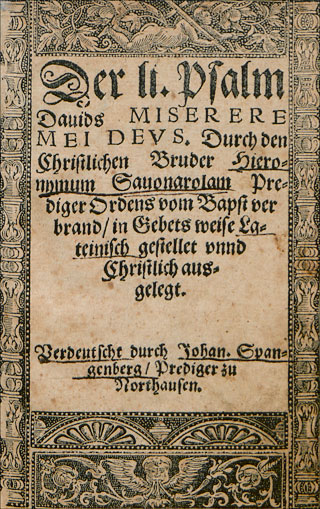 Der li. Psalm
Dauids MISERERE
MEI DEVS. Durch den
Christlichen Bruder Hiero-
nymum Sauonarolam Pre-
diger Ordens vom Bapst ver
brand / in Gebets weise La-
teinisch gestellet vnnd
Christlich aus-
gelegt.
Verdeutscht durch Johan. Span-
genberg / Prediger zu
Northausen.